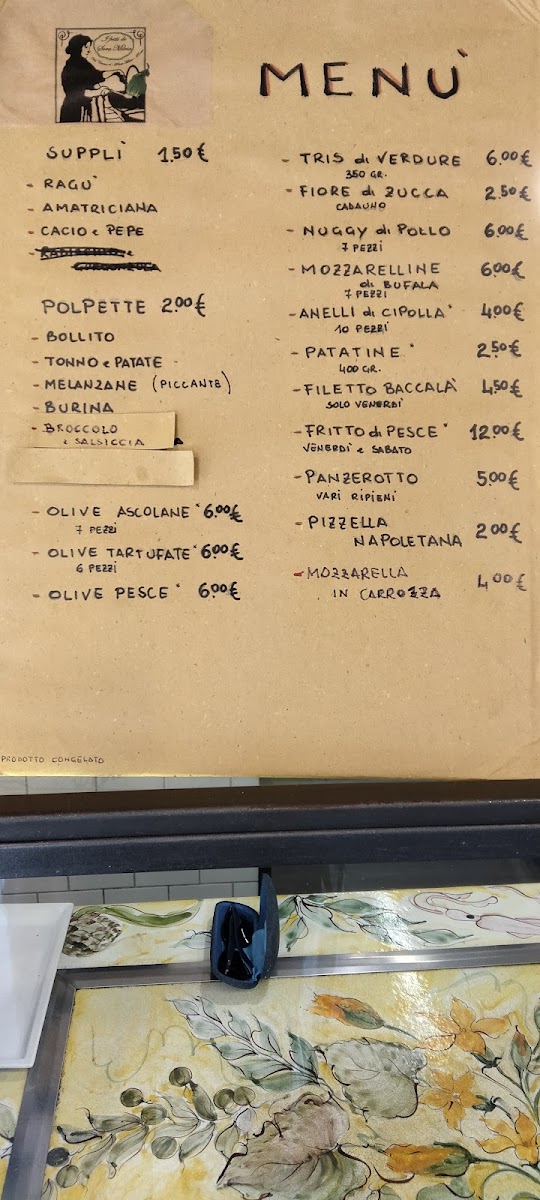 MENU'
SUPPLI' 1.50 €
- RAGU'
- AMATRICIANA
- CACIO e PEPE
POLPETTE 2.00 €
- BOLLITO
- TONNO e PATATE
- MELANZANE (PICCANTE)
- BURINA
- BROCCOLO
e SALSICCIA
- OLIVE ASCOLANE * 6.00 €
7 PEZZI
- OLIVE TARTUFATE * 6.00 €
6 PEZZI
- OLIVE PESCE * 6.00 €
- TRIS di VERDURE 6.00 €
350 GR.
- FIORE di ZUCCA 2.50 €
CADAUNO
- NUGGY di POLLO 6.00 €
7 PEZZI
- MOZZARELLINE 6.00 €
di BUFALA
7 PEZZI
- ANELLI di CIPOLLA * 4.00 €
10 PEZZI
- PATATINE * 2.50 €
400 GR.
- FILETTO BACCALA' 4.50 €
SOLO VENERDI'
- FRITTO di PESCE * 12.00 €
VENERDI' e SABATO
- PANZEROTTO 5.00 €
VARI RIPIENI
- PIZZELLA
NAPOLETANA 2.00 €
- MOZZARELLA
IN CARROZZA 4.00 €
PRODOTTO CONGELATO